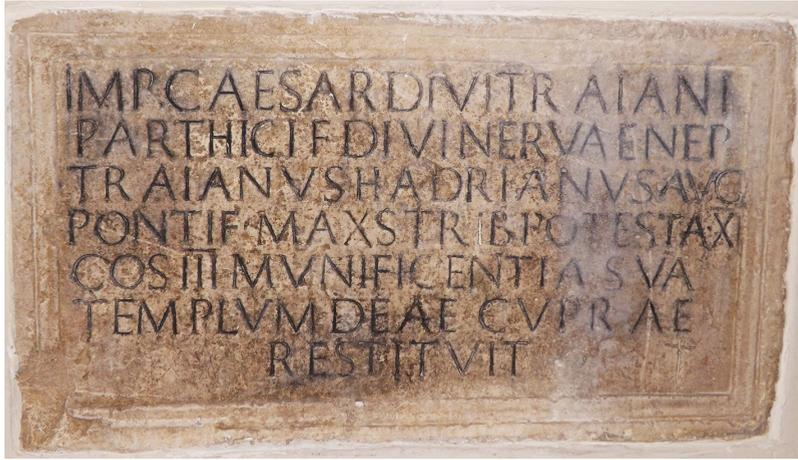 IMP·CAESAR DIVI TRAIANI
PARTHICI F DIVI NERVAE NEP
TRAIANVS HADRIANVS AVG
PONTIF·MAXS TRIB POTESTA·XI
COS III MVNIFICENTIA SVA
TEMPLVM DEAE CVPRAE
RESTITVIT